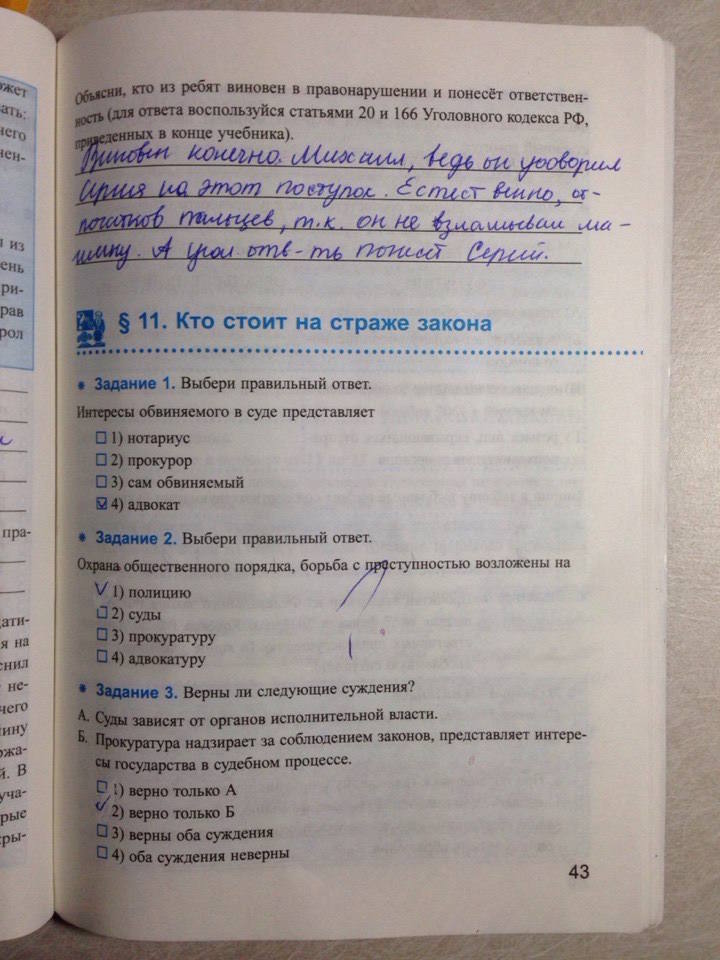 Объясни, кто из ребят виновен в правонарушении и понесёт ответствен-
ность (для ответа воспользуйся статьями 20 и 166 Уголовного кодекса РФ,
приведенных в конце учебника).
Виновен конечно Михаил, ведь он уговорил
на этот поступок. Естественно, от-
печатков пальцев, т.к. он не взламывал ма-
шину. А угол. отв-ть понесёт Сергей.
§ 11. Кто стоит на страже закона
Задание 1. Выбери правильный ответ.
Интересы обвиняемого в суде представляет
1) нотариус
2) прокурор
3) сам обвиняемый
4) адвокат
Задание 2. Выбери правильный ответ.
Охрана общественного порядка, борьба с преступностью возложены на
1) полицию
2) суды
3) прокуратуру
4) адвокатуру
Задание 3. Верны ли следующие суждения?
А. Суды зависят от органов исполнительной власти.
Б. Прокуратура надзирает за соблюдением законов, представляет интере-
сы государства в судебном процессе.
1) верно только А
2) верно только Б
3) верны оба суждения
4) оба суждения неверны
43